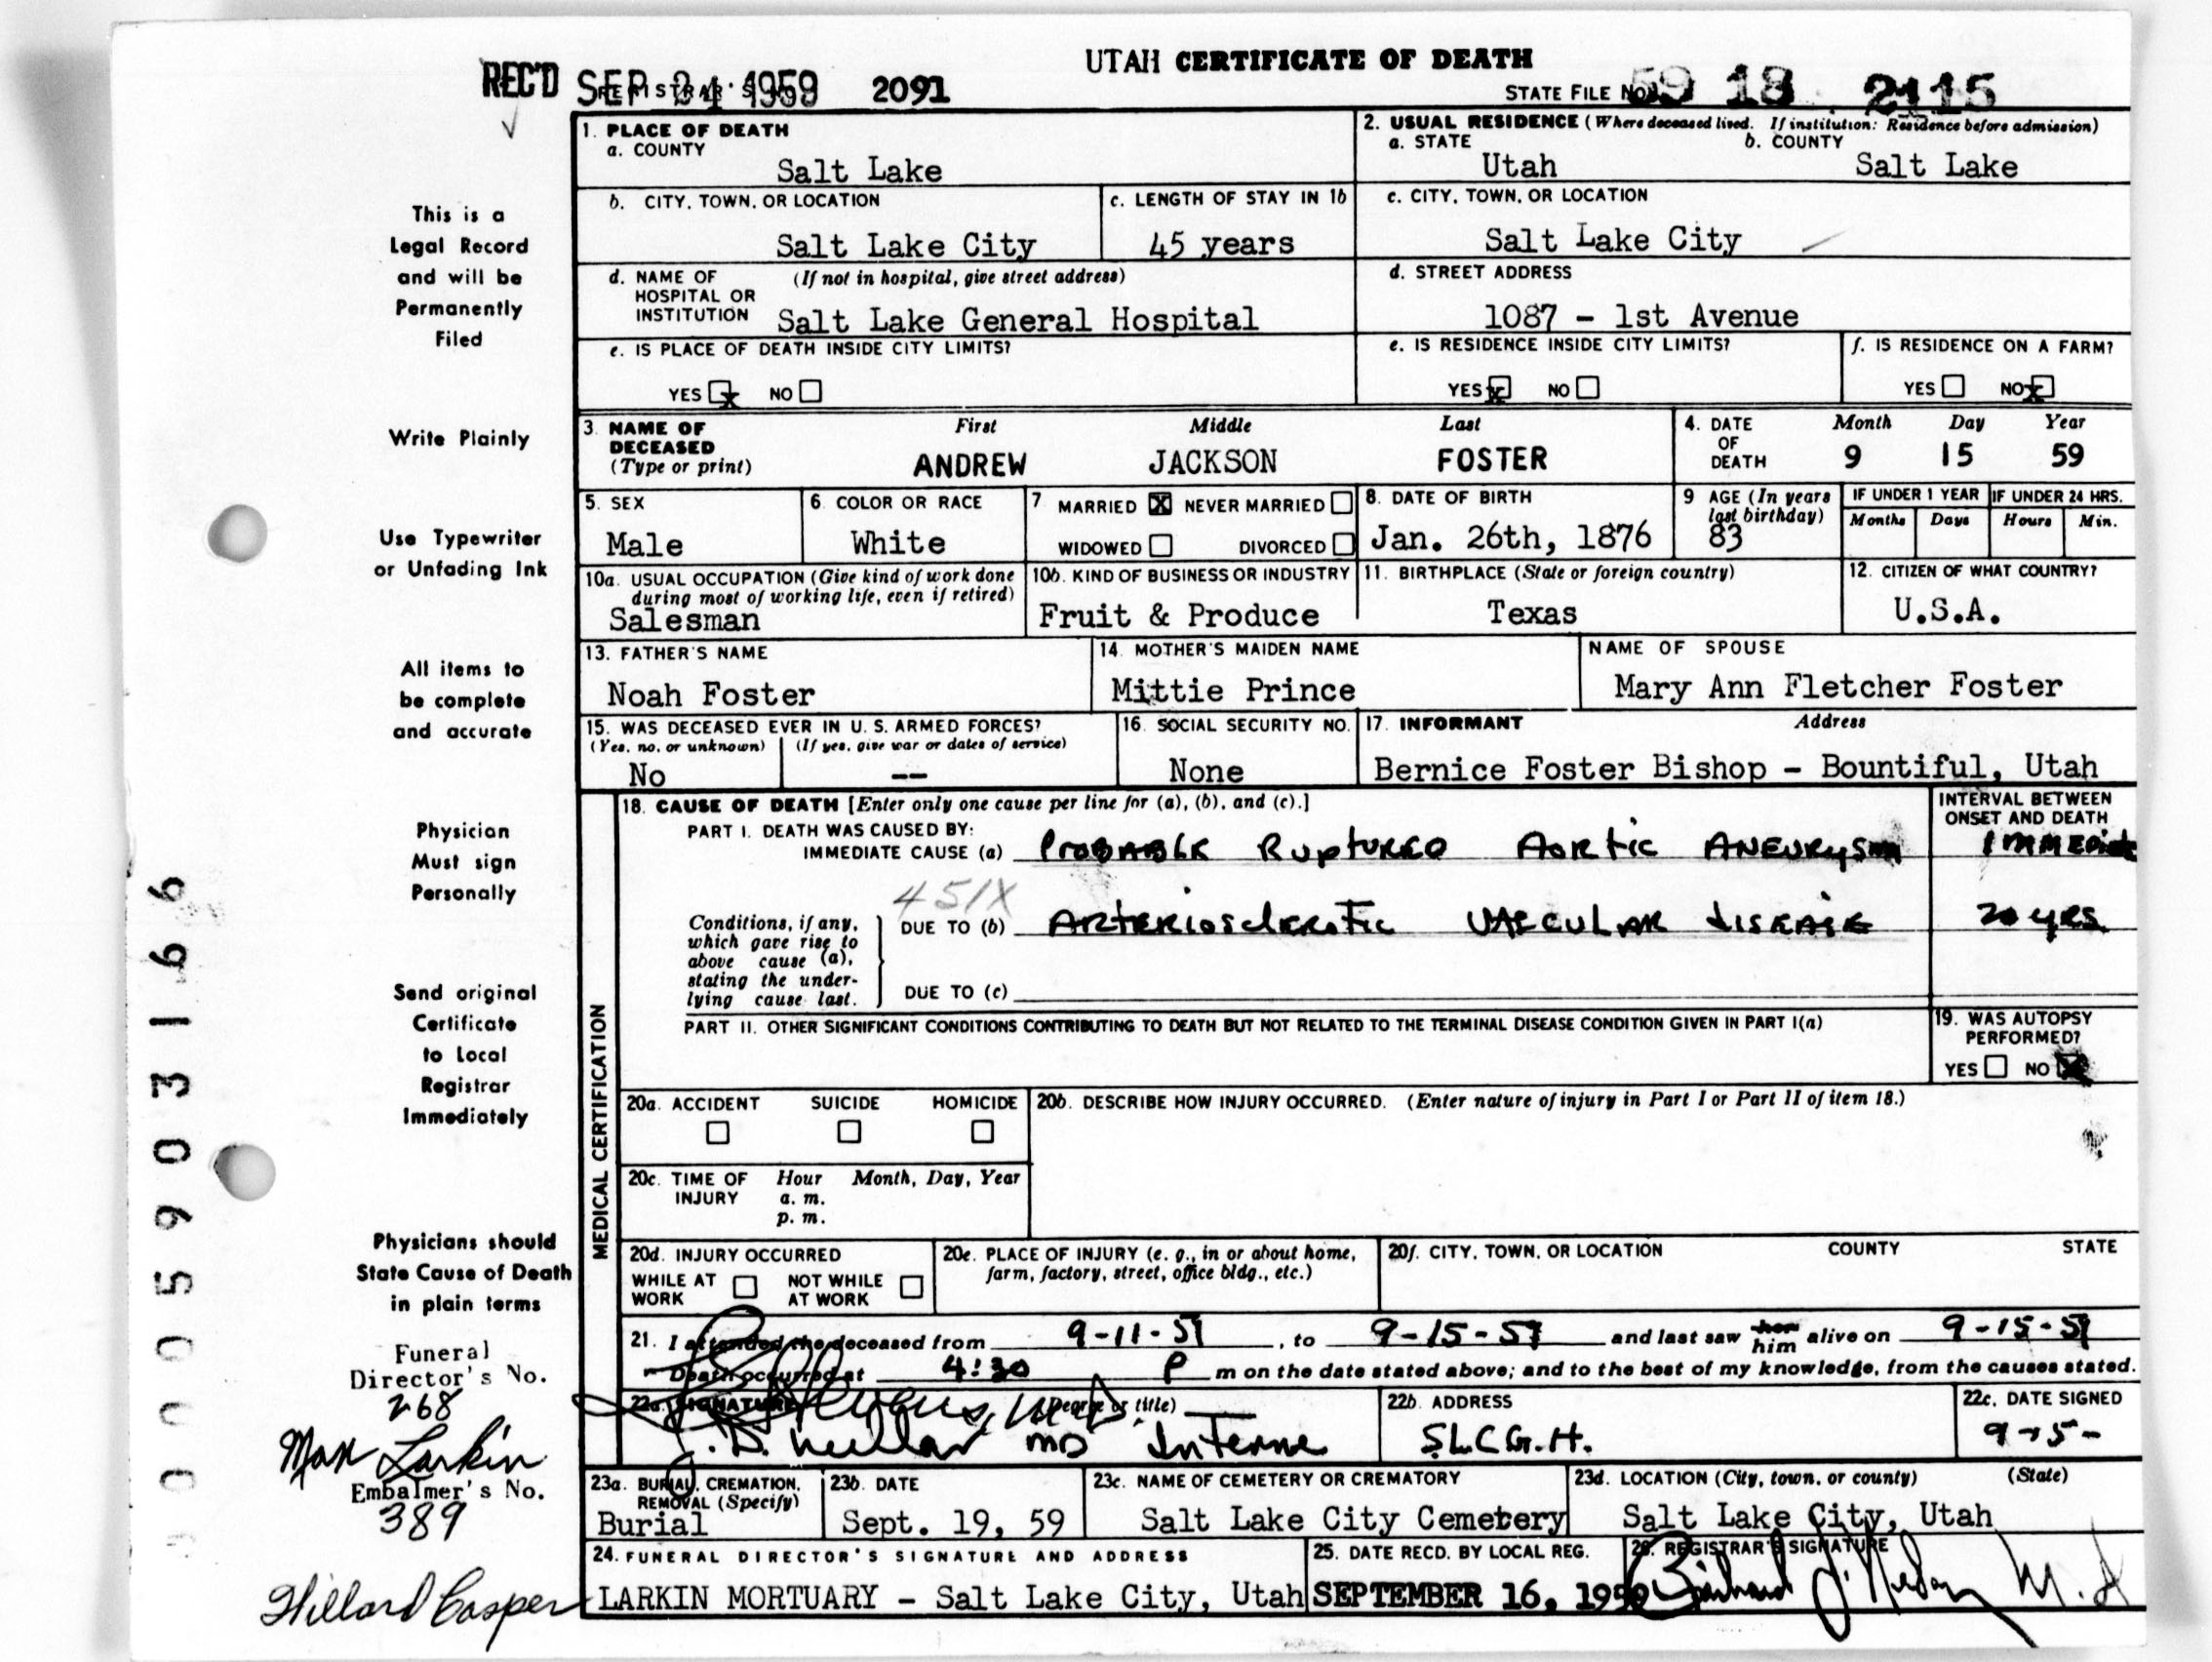 UTAH CERTIFICATE OF DEATH
REC'D SEP 24 1959 2091
STATE FILE NO. 59 18 2115
1. PLACE OF DEATH
a. COUNTY
Salt Lake
2. USUAL RESIDENCE (Where deceased lived. If institution: Residence before admission)
a. STATE b. COUNTY
Utah Salt Lake
b. CITY, TOWN, OR LOCATION
Salt Lake City
c. LENGTH OF STAY IN 1b
45 years
c. CITY, TOWN, OR LOCATION
Salt Lake City
d. NAME OF HOSPITAL OR INSTITUTION (If not in hospital, give street address)
Salt Lake General Hospital
d. STREET ADDRESS
1087 - 1st Avenue
e. IS PLACE OF DEATH INSIDE CITY LIMITS?
YES x NO
e. IS RESIDENCE INSIDE CITY LIMITS?
YES x NO
f. IS RESIDENCE ON A FARM?
YES NO x
3. NAME OF DECEASED (Type or print)
First Middle Last
ANDREW JACKSON FOSTER
4. DATE OF DEATH
Month Day Year
9 15 59
5. SEX
Male
6. COLOR OR RACE
White
7 MARRIED X NEVER MARRIED
WIDOWED DIVORCED
8. DATE OF BIRTH
Jan. 26th, 1876
9 AGE (In years last birthday)
83
IF UNDER 1 YEAR
Months Days
IF UNDER 24 HRS.
Hours Min.
10a. USUAL OCCUPATION (Give kind of work done during most of working life, even if retired)
Salesman
10b. KIND OF BUSINESS OR INDUSTRY
Fruit & Produce
11. BIRTHPLACE (State or foreign country)
Texas
12. CITIZEN OF WHAT COUNTRY?
U.S.A.
13. FATHER'S NAME
Noah Foster
14. MOTHER'S MAIDEN NAME
Mittie Prince
NAME OF SPOUSE
Mary Ann Fletcher Foster
15. WAS DECEASED EVER IN U. S. ARMED FORCES?
(Yes, no, or unknown) (If yes, give war or dates of service)
No --
16. SOCIAL SECURITY NO.
None
17. INFORMANT Address
Bernice Foster Bishop - Bountiful, Utah
MEDICAL CERTIFICATION
18. CAUSE OF DEATH [Enter only one cause per line for (a), (b), and (c).]
INTERVAL BETWEEN ONSET AND DEATH
PART I. DEATH WAS CAUSED BY:
IMMEDIATE CAUSE (a) Probable Ruptured Aortic Aneurysm
451X
Conditions, if any, which gave rise to above cause (a), stating the underlying cause last.
DUE TO (b) Arteriosclerotic Vascular Disease 20 yrs
DUE TO (c)
PART II. OTHER SIGNIFICANT CONDITIONS CONTRIBUTING TO DEATH BUT NOT RELATED TO THE TERMINAL DISEASE CONDITION GIVEN IN PART I(a)
19. WAS AUTOPSY PERFORMED?
YES NO X
20a. ACCIDENT SUICIDE HOMICIDE
20b. DESCRIBE HOW INJURY OCCURRED. (Enter nature of injury in Part I or Part II of item 18.)
20c. TIME OF INJURY Hour Month, Day, Year
a. m.
p. m.
20d. INJURY OCCURRED
WHILE AT WORK NOT WHILE AT WORK
20e. PLACE OF INJURY (e. g., in or about home, farm, factory, street, office bldg., etc.)
20f. CITY, TOWN, OR LOCATION COUNTY STATE
21. I attended the deceased from 9-11-59, to 9-15-59 and last saw her him alive on 9-15-59
Death occurred at 4:30 P m on the date stated above; and to the best of my knowledge, from the causes stated.
22a. SIGNATURE (Degree or title)
MD Interne
22b. ADDRESS
S.L.C.G.H.
22c. DATE SIGNED
23a. BURIAL, CREMATION, REMOVAL (Specify)
Burial
23b. DATE
Sept. 19, 59
23c. NAME OF CEMETERY OR CREMATORY
Salt Lake City Cemetery
23d. LOCATION (City, town, or county) (State)
Salt Lake City, Utah
24. FUNERAL DIRECTOR'S SIGNATURE AND ADDRESS
LARKIN MORTUARY - Salt Lake City, Utah
25. DATE RECD. BY LOCAL REG.
SEPTEMBER 16, 1959
26. REGISTRAR'S SIGNATURE
This is a
Legal Record
and will be
Permanently
Filed
Write Plainly
Use Typewriter
or Unfading Ink
All items to
be complete
and accurate
Physician
Must sign
Personally
Send original
Certificate
to Local
Registrar
Immediately
Physicians should
State Cause of Death
in plain terms
Funeral
Director's No.
268
Max Larkin
Embalmer's No.
389
Hillard Casper